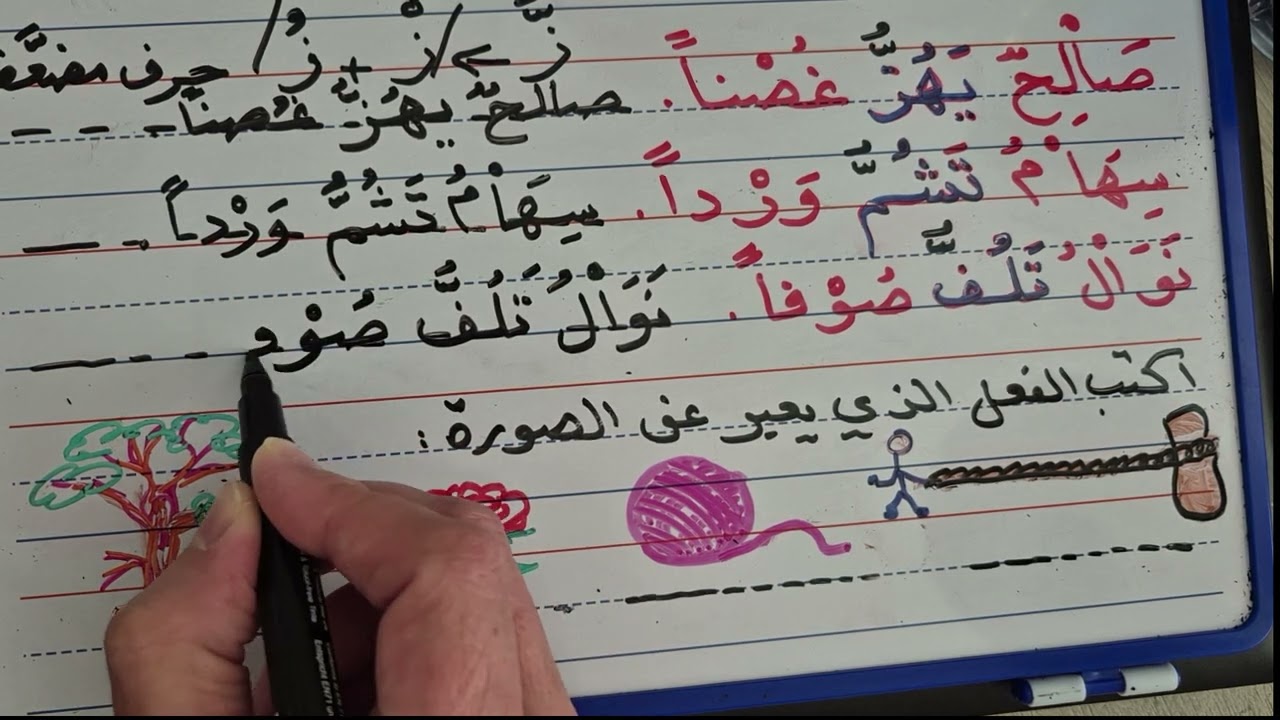 زَّ > زْ + زُ / حرف مضعَّف
صَالِحّ يَهُزُّ غُصْناً. صالحّ يهُزُّ غُصناً
سِهَاْمُ تَشُمُّ وَرْداً. سِهَاْمُ تَشُمُّ وَرْداً.
نَوَاْلُ تَلُفَّ صُوْفاً. نَوَاْلُ تَلُفَّ صُوْف
اكتب الفعل الذي يعبر عن الصورة: